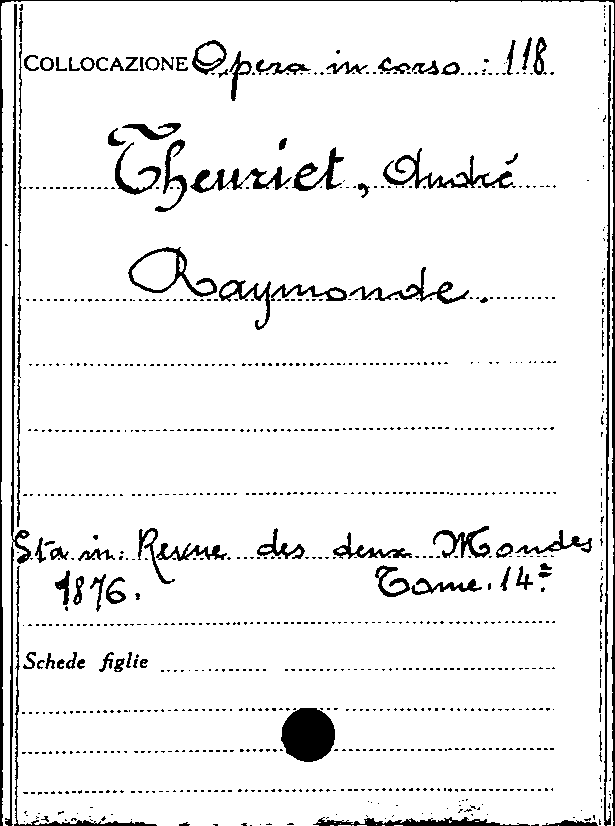 COLLOCAZIONE Opera in corso : 118
Theuriet, André
Raymonde.
Sta in: Revue des deux Mondes
1876. Tome. 14=
Schede figlie